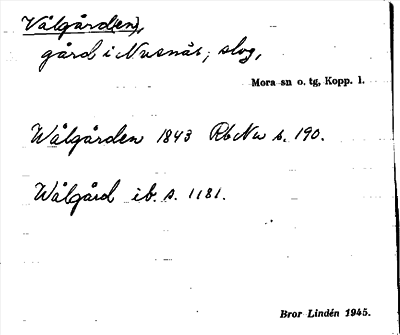 Vålgård(en),
gård i Nusnäs; slog,
Mora sn o. tg, Kopp. l.
Wålgården 1843 Rb Nu s. 190.
Wålgård ib. s. 1181.
Bror Lindén 1945.